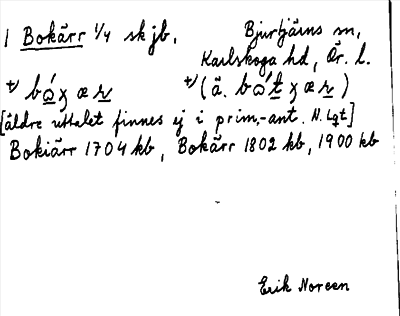 1 Bokärr 1/4 sk jb.
Bjurtjärns sn,
Karlskoga hd, Ör. l.
+) bώʒ æ r +) (ä. bώt ʒ æ r)
[äldre uttalet finnes ej i prim.-ant. N. Lgt]
Bokiärr 1704 kb, Bokärr 1802 kb, 1900 kb
Erik Noreen